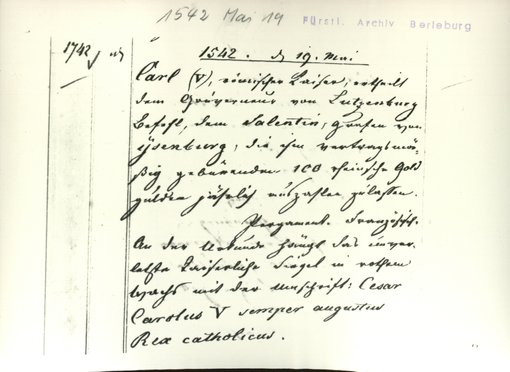 1542 Mai 19
Fürstl. Archiv Berleburg
1742
1542. d 19. Mai
Carl (V), römischer Kaiser, ertheilt
dem Gouverneur von Lutzenburg
Befehl, dem Salentin, Grafen von
Ysenburg, die ihm vertragsmä-
ßig gebürenden 100 rheinische Gold
gulden jährlich auszahlen zulassen.
Pergament. Französisch.
An der Urkunde hängt das unver-
letzte Kaiserliche Siegel in rothem
Wachs mit der Umschrift: Cesar
Carolus V semper augustus
Rex catholicus.